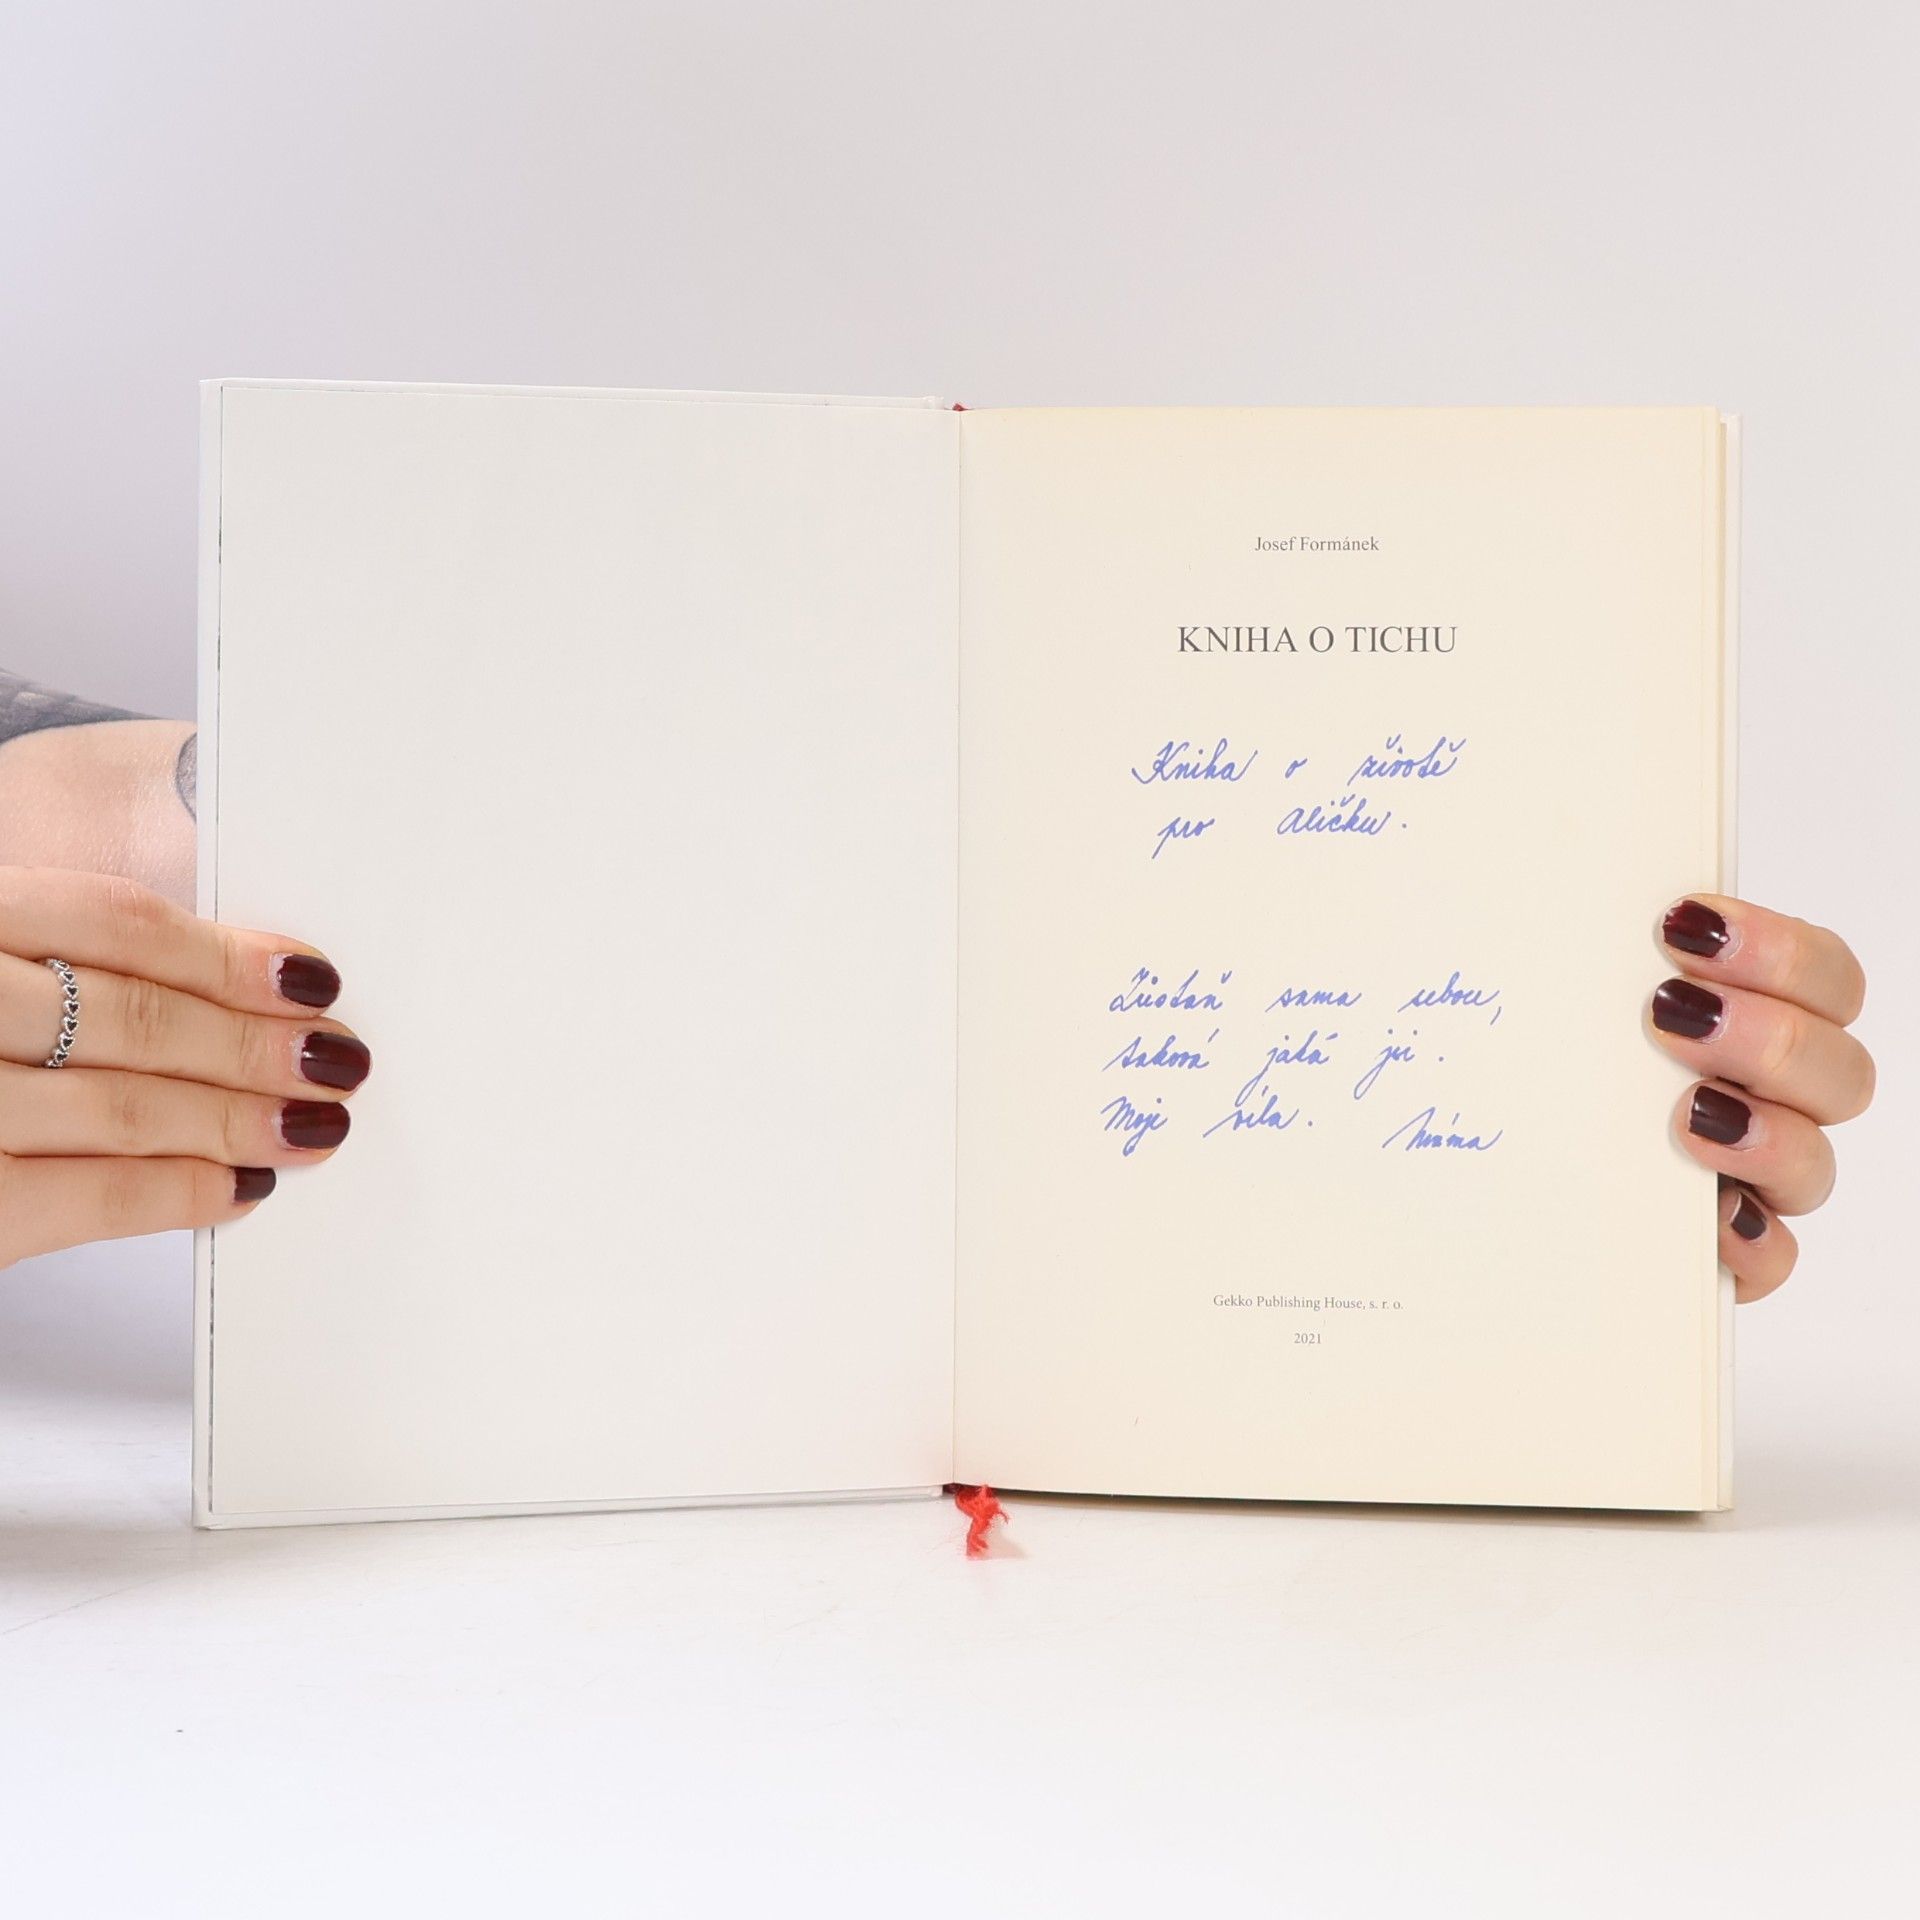 Josef Formánek
KNIHA O TICHU
Kniha o životě
pro Aličku.
Zůstaň sama sebou,
taková jaká jsi.
Moje víla. Máma
Gekko Publishing House, s. r. o.
2021